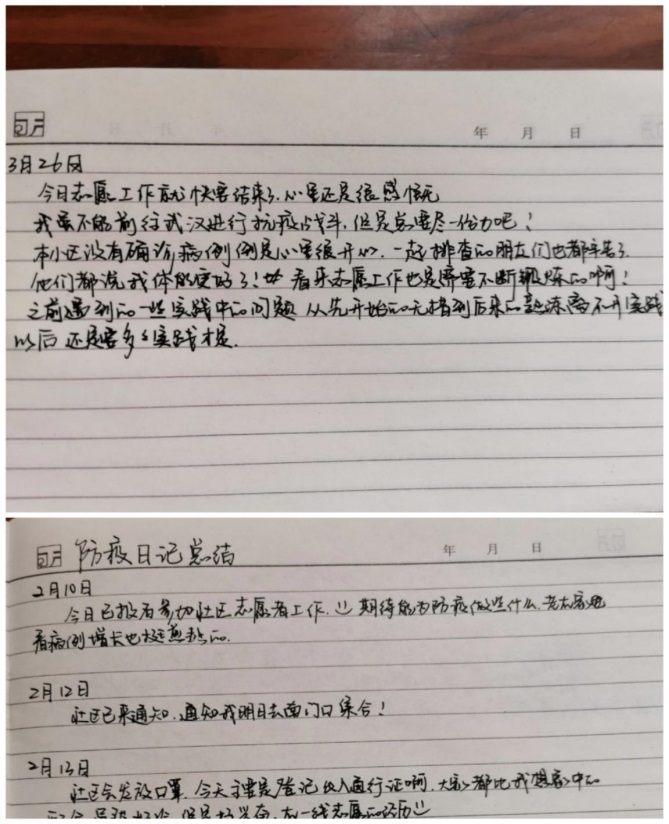 年 月 日
3月26日
今日志愿工作就快要结束了,心里还是很感慨
我虽不能前往武汉进行抗疫战斗,但是总要尽一份力吧!
本小区没有确诊病例倒是心里很开心,一起排查的朋友们也都辛苦了
他们都说我体能变好了! 看来志愿工作也是需要不断锻炼的啊!
之前遇到的一些实践中的问题 从先开始的无措到后来的熟练离不开实践
以后还是要多多实践才是.
防疫日记总结
年 月 日
2月10日
今日已报名参加社区志愿者工作. 期待能为防疫做些什么,
看病例增长也挺煎熬的.
2月12日
社区已来通知,通知我明日去西门口集合!
2月13日
社区会发放口罩,今天主要是登记出入通行证啊,大家都比我想象中的